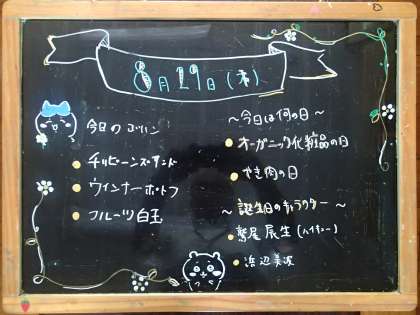 8月29日(木)
今日のゴハン
チリビーンズサンド
ウインナーポトフ
フルーツ白玉
～今日は何の日～
オーガニック化粧品の日
やき肉の日
～誕生日のキャラクター～
鷲尾辰生(ハイキュー)
浜辺美波